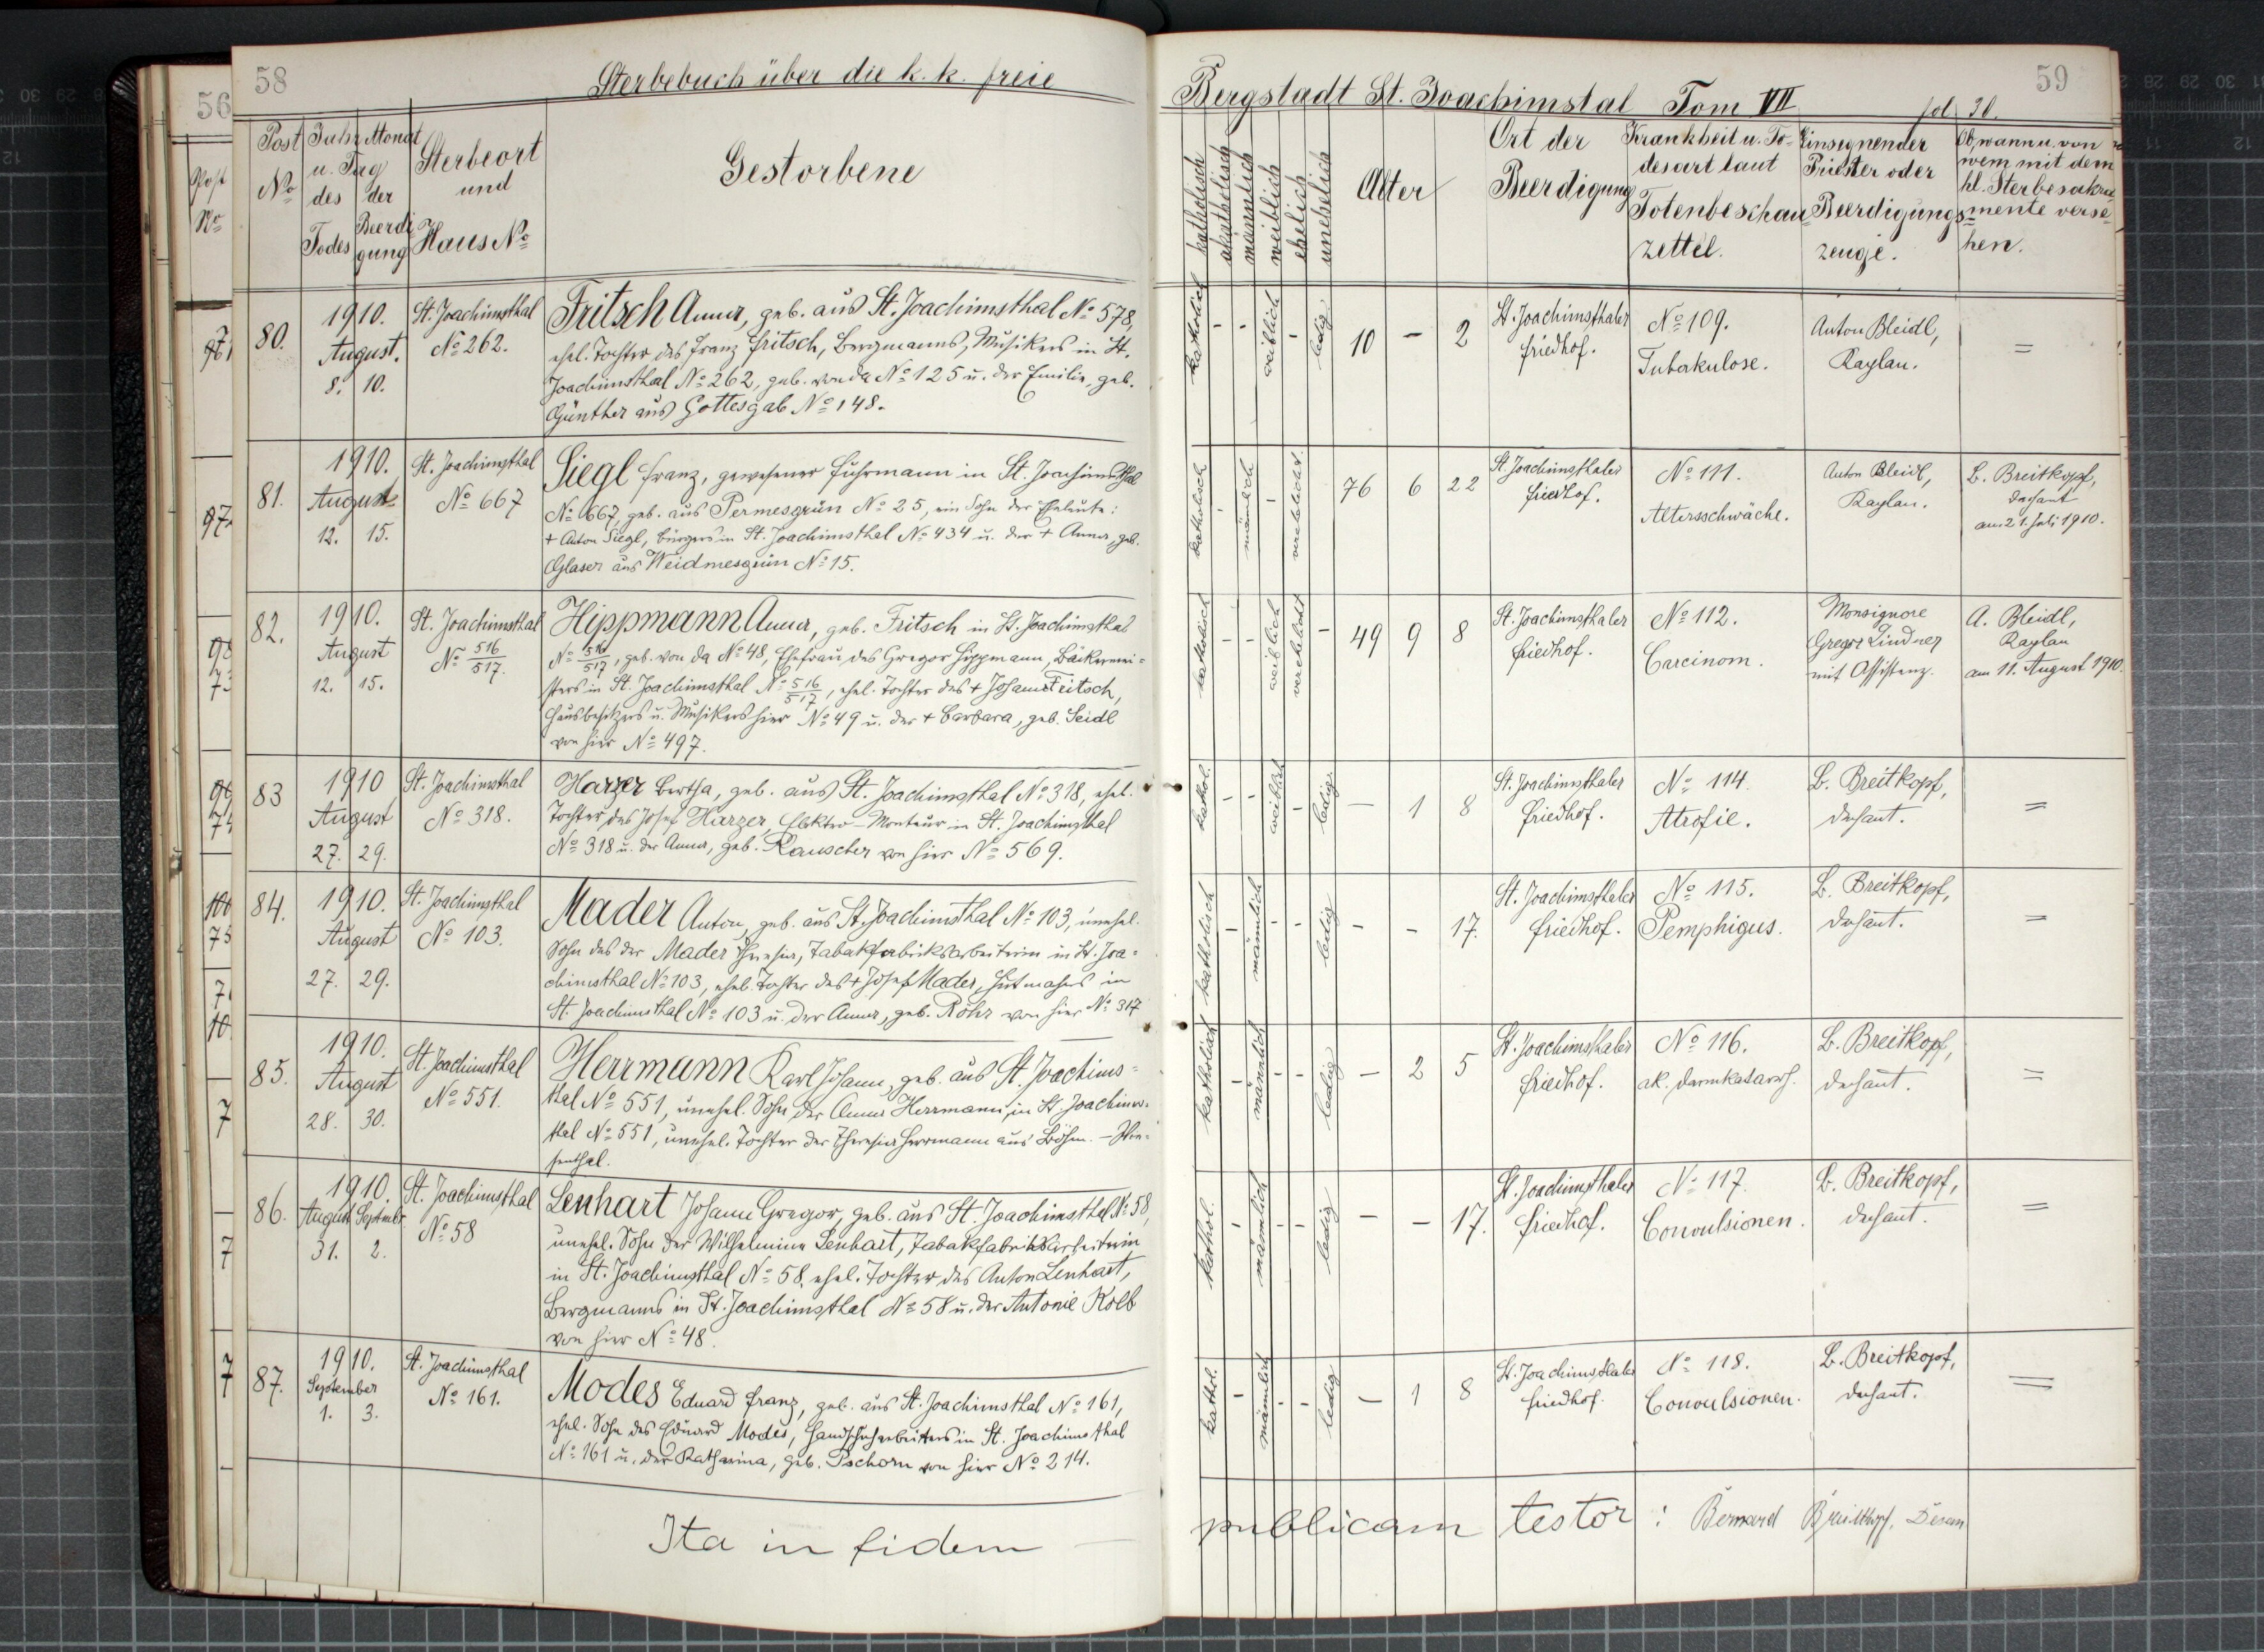 58
Sterbebuch über die k. k. freie
Post No
Jahr Monat u. Tag
des Todes
der Beerdigung
Sterbeort und Haus No
Gestorbene
80.
1910.
August.
8. 10.
St. Joachimsthal
No 262.
Fritsch Anna, geb. aus St. Joachimsthal No 578,
ehel. Tochter des Franz Fritsch, Bergmanns, Musikers in St.
Joachimsthal No 262, geb. von da No 125 u. der Emilie, geb.
Günther aus Gottesgab No 148.
81.
1910.
August
12. 15.
St. Joachimsthal
No 667
Siegl Franz, gewesener Fuhrmann in St. Joachimsthal
No 667, geb. aus Permesgrün No 25, ein Sohn der Eheleute:
+ Anton Siegl, Bürgers in St. Joachimsthal No 434 u. der + Anna, geb.
Glaser aus Weidmesgrün No 15.
82.
1910.
August
12. 15.
St. Joachimsthal
No 516/517.
Hippmann Anna, geb. Fritsch in St. Joachimsthal
No 516/517, geb. von da No 48, Ehefrau des Gregor Hippmann, Bäckermei=
sters in St. Joachimsthal No 516/517, ehel. Tochter des + Johann Fritsch,
Hausbesitzers u. Musikers hier No 49 u. der + Barbara, geb. Seidl
von hier No 497.
83
1910
August
27. 29.
St. Joachimsthal
No 318.
Harzer Bertha, geb. aus St. Joachimsthal No 318, ehel.
Tochter des Josef Harzer, Elektro-Monteur in St. Joachimsthal
No 318 u. der Anna, geb. Rauscher von hier No 569.
84.
1910.
August
27. 29.
St. Joachimsthal
No 103.
Mader Anton, geb. aus St. Joachimsthal No 103, unehel.
Sohn des der Mader Theresia, Tabakfabriksarbeiterin in St. Joa=
chimsthal No 103, ehel. Tochter des + Josef Mader, Hutmachers in
St. Joachimsthal No 103 u. der Anna, geb. Röhr von hier No 317
85.
1910.
August
28. 30.
St. Joachimsthal
No 551.
Herrmann Karl Johann, geb. aus St. Joachims=
thal No 551, unehel. Sohn der Anna Herrmann, in St. Joachims=
thal No 551, unehel. Tochter der Theresia Herrmann aus Böhm. - Wie=
senthal.
86.
1910.
August September
31. 2.
St. Joachimsthal
No 58
Lenhart Johann Gregor, geb. aus St. Joachimsthal No 58,
unehel. Sohn der Wilhelmine Lenhart, Tabakfabriksarbeiterin
in St. Joachimsthal No 58, ehel. Tochter des Anton Lenhart,
Bergmanns in St. Joachimsthal No 58 u. der Antonie Kolb
von hier No 48.
87.
1910.
September
1. 3.
St. Joachimsthal
No 161.
Modes Eduard Franz, geb. aus St. Joachimsthal No 161,
ehel. Sohn des Eduard Modes, Handschuharbeiters in St. Joachimsthal
No 161 u. der Katharina, geb. Pschorn von hier No 214.
Ita in fidem
Bergstadt St. Joachimstal Tom VII
fol. 30.
59
katholisch
akatholisch
männlich
weiblich
ehelich
unehelich
Alter
Ort der
Beerdigung
Krankheit u. To-
desart laut
Totenbeschau
zettel.
Einsegnender
Priester oder
Beerdigungs=
zeuge.
Ob, wann u. von
wem mit dem
hl. Sterbesakra=
mente verse=
hen.
katholisch - - weiblich - ledig 10 - 2
St. Joachimsthaler
Friedhof.
No 109.
Tuberkulose.
Anton Bleidl,
Kaplan.
=
katholisch - männlich - verehelicht. 76 6 22
St. Joachimsthaler
Friedhof.
No 111.
Altersschwäche.
Anton Bleidl,
Kaplan.
B. Breitkopf,
Dechant
am 21. Juli 1910.
katholisch - - weiblich verehelicht - 49 9 8
St. Joachimsthaler
Friedhof.
No 112.
Carcinom.
Monsignore
Gregor Lindner
mit Assistenz.
A. Bleidl,
Kaplan
am 11. August 1910.
kathol. - - weiblich - ledig - 1 8
St. Joachimsthaler
Friedhof.
No 114.
Atrofie.
B. Breitkopf,
Dechant.
=
katholisch - männlich - - ledig - - 17.
St. Joachimsthaler
Friedhof.
No 115.
Pemphigus.
B. Breitkopf,
Dechant.
=
katholisch - männlich - - ledig - 2 5
St. Joachimsthaler
Friedhof.
No 116.
ak. Darmkatarrh.
B. Breitkopf,
Dechant.
=
kathol. - männlich - - ledig - - 17.
St. Joachimsthaler
Friedhof.
No 117.
Convulsionen.
B. Breitkopf,
Dechant.
=
kathol. - männlich - - ledig - 1 8
St. Joachimsthaler
Friedhof.
No 118.
Convulsionen.
B. Breitkopf,
Dechant.
=
publicam testor : Bernard Breitkopf, Dechant